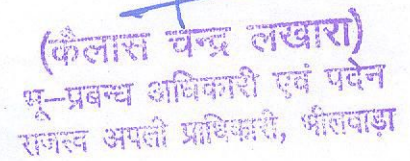 (कैलास चन्द्र लखारा)
भू-प्रबन्ध अधिकारी एवं पदेन
राजस्व अपली प्राधिकारी, भीलवाड़ा